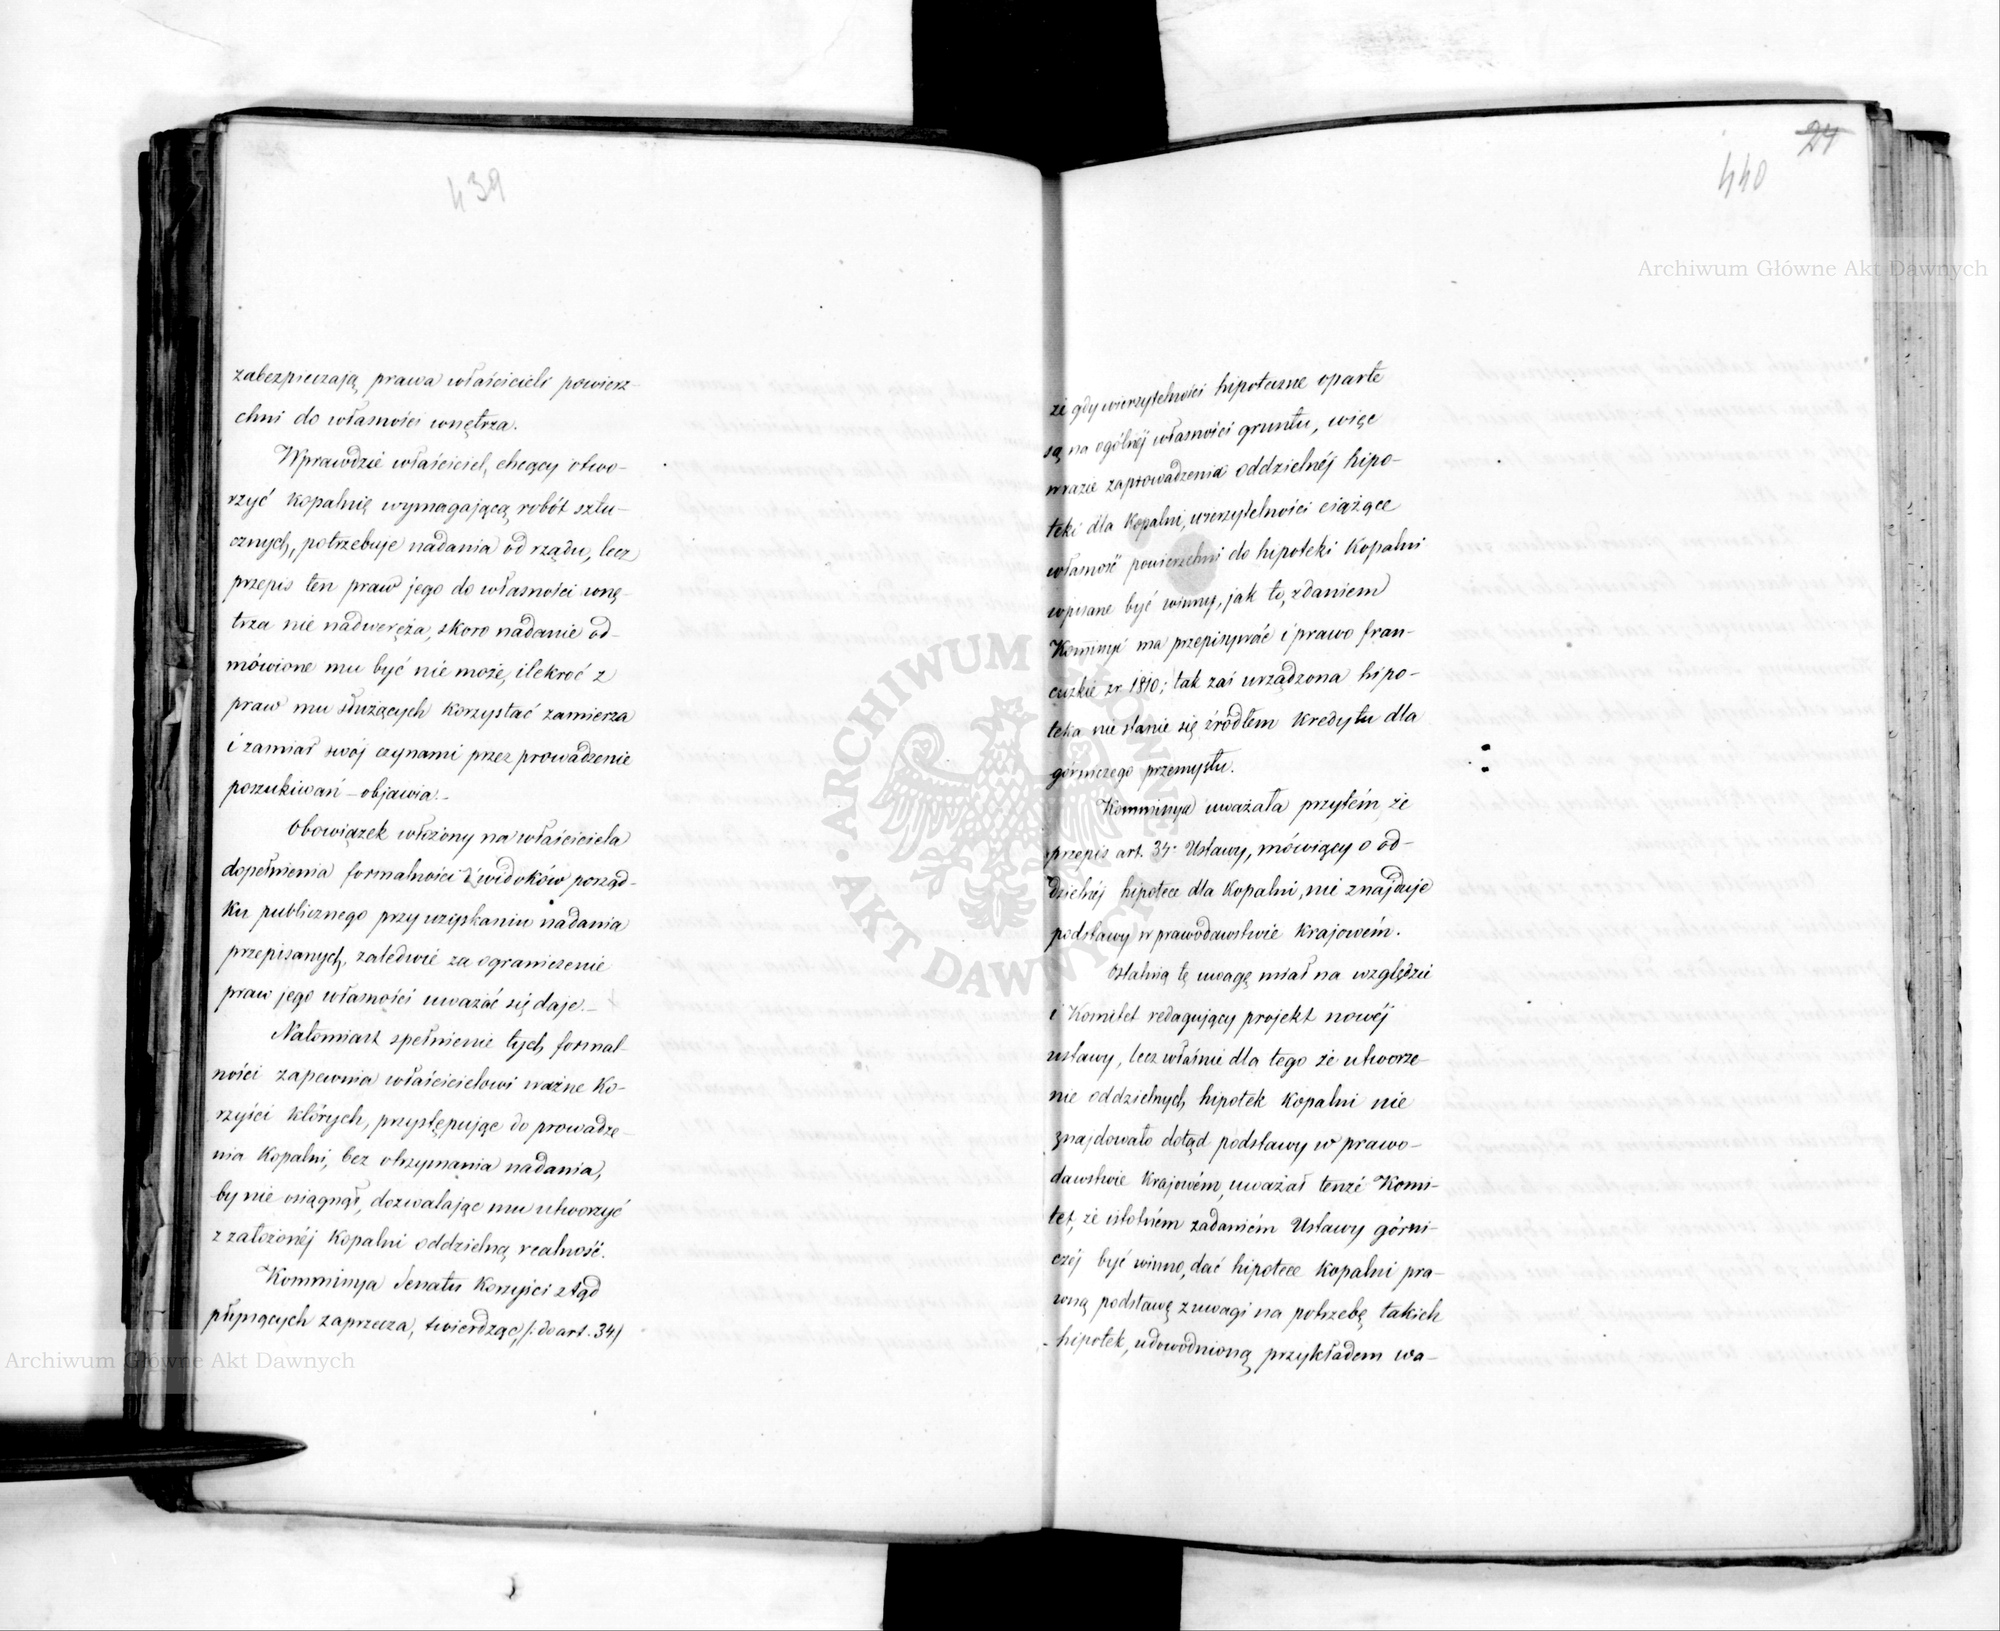 439
zabezpieczają prawa właścicieli powierz-
chni do własności wnętrza.
Wprawdzie właściciel, chcący otwo-
rzyć kopalnię wymagającą robót sztu-
cznych, potrzebuje nadania od rządu, lecz
przepis ten praw jego do własności wnę-
trza nie nadweręża, skoro nadanie od-
mówione mu być nie może, ilekroć z
praw mu służących korzystać zamierza
i zamiar swój czynami przez prowadzenie
poszukiwań – objawia. –
Obowiązek włożony na właściciela
dopełnienia formalności z widoków porząd-
ku publicznego przy uzyskaniu nadania
przepisanych, zaledwie za ograniczenie
praw jego własności uważać się daje. –
Natomiast spełnienie tych formal-
ności zapewnia właścicielowi ważne ko-
rzyści których, przystępując do prowadze-
nia kopalni, bez otrzymania nadania,
by nie osiągnął, dozwalając mu utworzyć
z założonéj kopalni oddzielną realność.
Kommisya Senatu korzyści ztąd
płynących zaprzecza, twierdząc, /: do art. 34/
24
440
że gdy wierzytelności hipoteczne oparte
są na ogólnéj własności gruntu, więc
w razie zaprowadzenia oddzielnéj hipo-
teki dla kopalni, wierzytelności ciążące
własność powierzchni do hipoteki kopalni
wpisane być winny, jak to, zdaniem
Kommisyi ma przepisywać i prawo fran-
cuzkie z r. 1810; tak zaś urządzona hipo-
teka nie stanie się źródłem kredytu dla
górniczego przemysłu.
Kommisya uważała przytém, że
przepis art. 34. Ustawy, mówiący o od-
dzielnéj hipotece dla kopalni, nie znajduje
podstawy w prawodawstwie krajowém.
Ostatnią tę uwagę miał na względzie
i Komitet redagujący projekt nowéj
ustawy, lecz właśnie dla tego że utworze-
nie oddzielnych hipotek kopalni nie
znajdowało dotąd podstawy w prawo-
dawstwie krajowém, uważał tenże Komi-
tet, że istotném zadaniem Ustawy górni-
czéj być winno, dać hipotece kopalni pra-
wną podstawę z uwagi na potrzebę takich
hipotek, udowodnioną przykładem wa-
Archiwum Główne Akt Dawnych
Archiwum Główne Akt Dawnych
ARCHIWUM GŁÓWNE AKT DAWNYCH